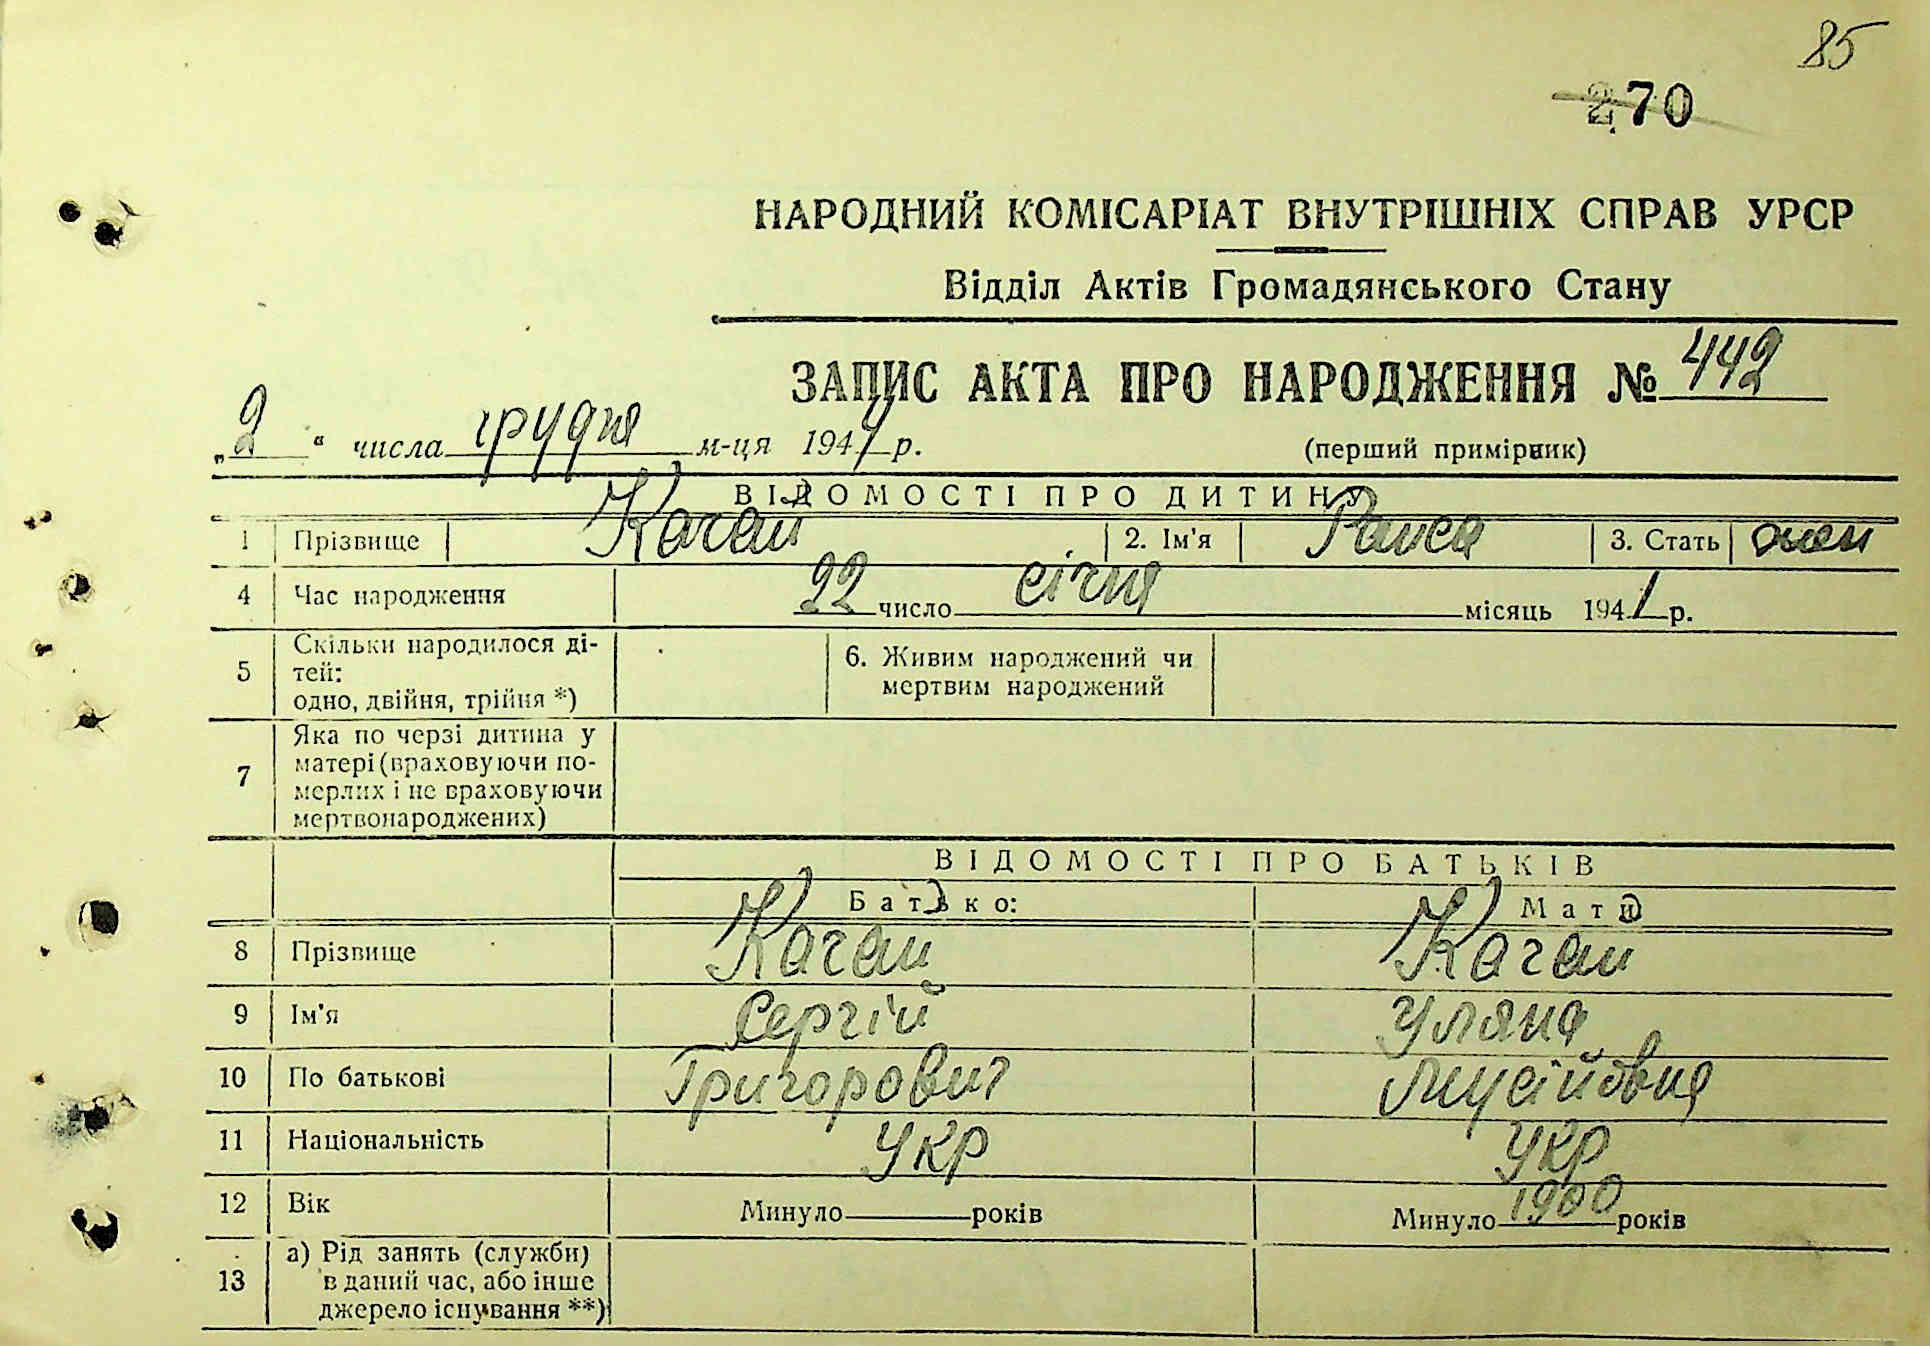 85
270
НАРОДНИЙ КОМІСАРІАТ ВНУТРІШНІХ СПРАВ УРСР
Відділ Актів Громадянського Стану
ЗАПИС АКТА ПРО НАРОДЖЕННЯ № 442
„2“ числа грудня м-ця 1944 р. (перший примірник)
ВІДОМОСТІ ПРО ДИТИНУ
1 Прізвище Качан 2. Ім'я Раиса 3. Стать жен
4 Час народження 22 число січня місяць 1941 р.
5 Скільки народилося ді-
тей:
одно, двійня, трійня *)
6. Живим народжений чи
мертвим народжений
7 Яка по черзі дитина у
матері (враховуючи по-
мерлих і не враховуючи
мертвонароджених)
ВІДОМОСТІ ПРО БАТЬКІВ
Батько: Мати
8 Прізвище Качан Качан
9 Ім'я Сергій Уляна
10 По батькові Григорович Мусіївна
11 Національність укр укр
12 Вік Минуло років Минуло 1900 років
13 а) Рід занять (служби)
в даний час, або інше
джерело існування **)